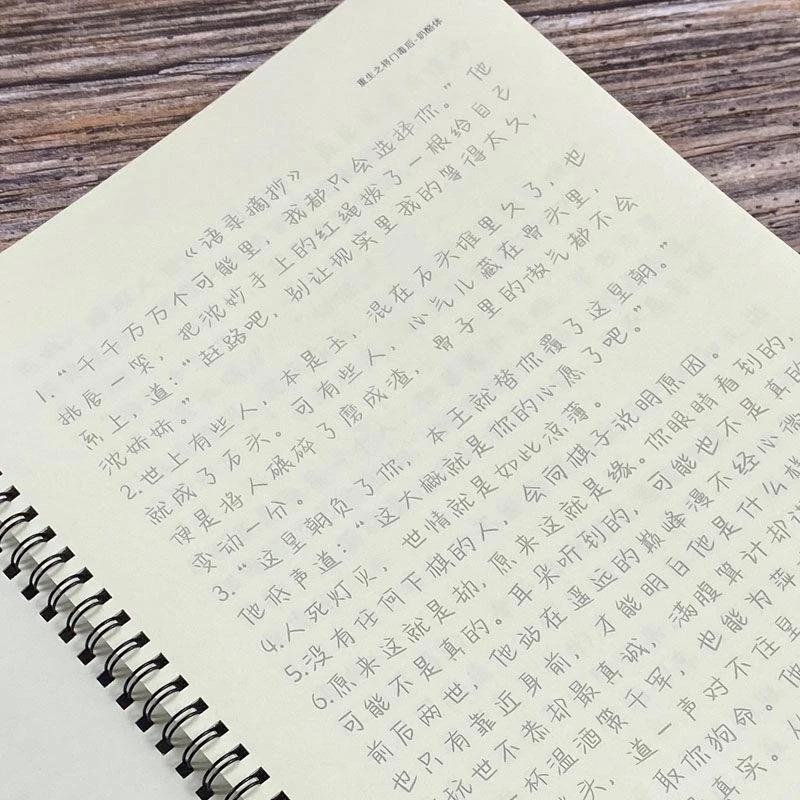 重生之将门毒后-奶酪体
《语录摘抄》
1.“千千万万个可能里，我都只会选择你。”他
挑唇一笑，把沈妙手上的红绳拨了一根给自己
系上，道：“赶路吧，别让现实里我的等得太久，
沈娇娇。”
2.世上有些人，本是玉，混在石头堆里久了，也
就成了石头。可有些人，心气儿藏在骨头里，
便是将人碾碎了磨成渣，骨子里的傲气都不会
变动一分。
3.“这皇朝负了你，本王就替你覆了这皇朝。”
他低声道：“这大概就是你的心愿了吧。”
4.人死灯灭，世情就是如此凉薄。
5.没有任何下棋的人，会向棋子说明原因。
6.原来这就是劫，原来这就是缘。你眼睛看到的，
可能不是真的。耳朵听到的，可能也不是真的
前后两世，他站在遥远的巅峰漫不经心微
也只有靠近身前，才能明白他是什么样
玩世不恭却最真诚，满腹算计却
一杯温酒赞千军，也能为萍
头，道一声对不住
取你狗命。他
真实。从